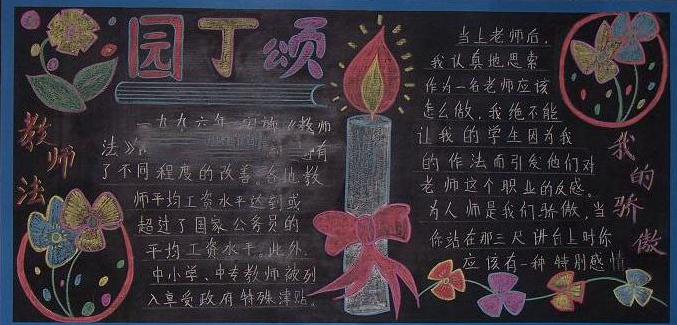 园丁颂
教师法
一九九六年实施《教师
法》
有
了不同程度的改善。各地教
师平均工资水平达到或
超过了国家公务员的
平均工资水平。此外,
中小学、中专教师被列
入享受政府特殊津贴。
当上老师后,
我认真地思索
作为一名老师应该
怎么做,我绝不能
让我的学生因为我
的作法而引发他们对
老师这个职业的反感。
为人师是我们骄傲,当
你站在那三尺讲台上时你
应该有一种特别感情
我的骄傲